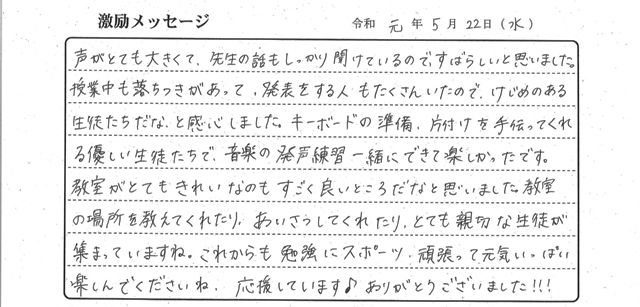 激励メッセージ 令和 元 年 5 月 22日 (水)
声がとても大きくて、先生の話もしっかり聞けているので、すばらしいと思いました。
授業中も落ちつきがあって、発表をする人もたくさんいたので、けじめのある
生徒たちだな、と感心しました。キーボードの準備、片付けを手伝ってくれ
る優しい生徒たちで、音楽の発声練習一緒にできて楽しかったです。
教室がとてもきれいなのもすごく良いところだなと思いました。教室
の場所を教えてくれたり、あいさつしてくれたり、とても親切な生徒が
集まっていますね。これからも勉強にスポーツ、頑張って元気いっぱい
楽しんでくださいね。応援しています♪ありがとうございました!!!